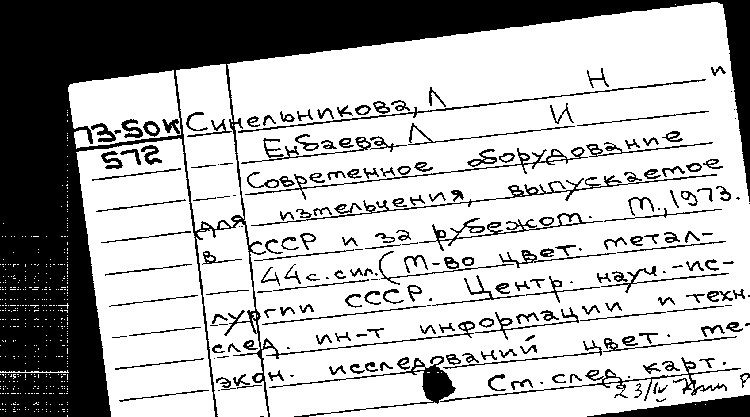 73-50К
572
Синельникова, Л Н и
Енбаева, Л И
Современное оборудование
для измельчения, выпускаемое
в СССР и за рубежом. М., 1973.
44 с. с ил. (М-во цвет. метал-
лургии СССР. Центр. науч.-ис-
след. ин-т информации и техн.
экон. исследований цвет. ме-
См. след. карт.
23/IV